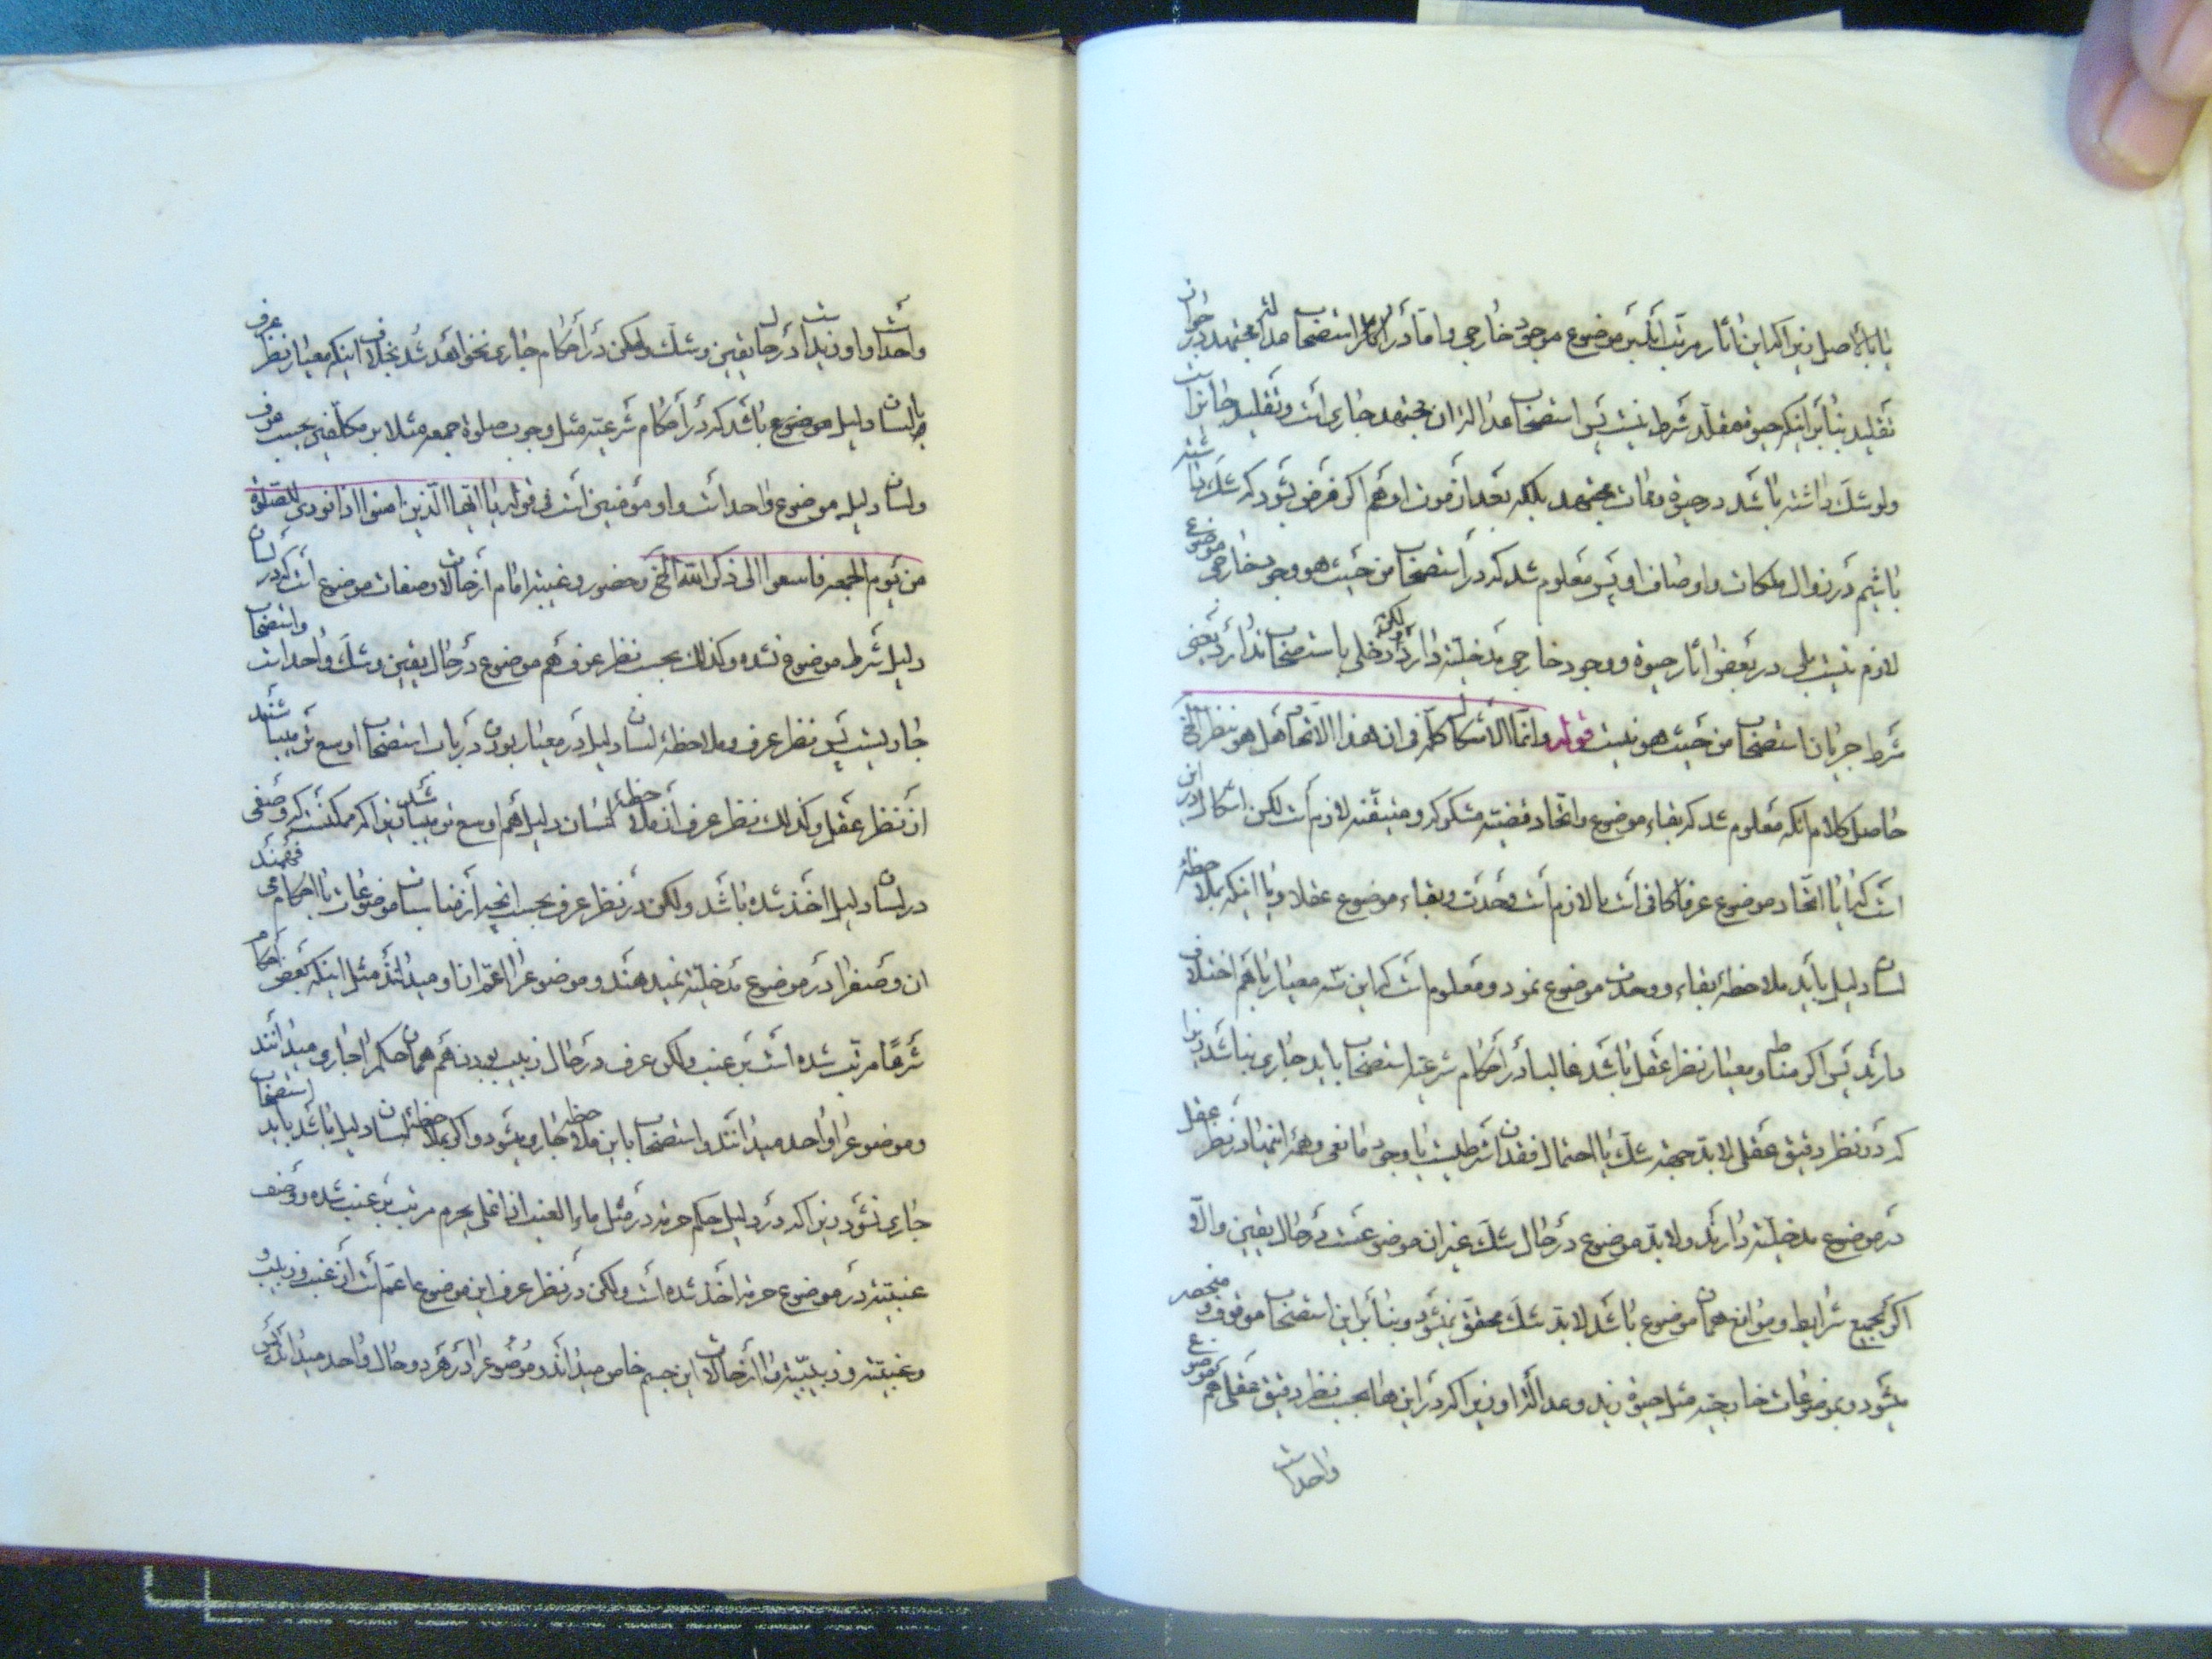 یا بالاصل زیرا که این اثار مرتب است بر موضوع موجود خارجی و اما در انکار استصحاب عدالة مجتهد در جواز
تقلید بنا بر اینکه حیوة مقلد شرط نیست پس استصحاب عدالة ان مجتهد جاری است و تقلید جایز است
ولو شک داشته باشد در حیوة و ممات مجتهد بلکه بعد از موت او هم اگر فرض بشود که شک داشته
باشیم در زوال ملکات و اوصاف او پس معلوم شد که در استصحاب من حیث هو وجود خارجی موضوع
لازم نیست بلی در بعض اثار حیوة و وجود خارجی مدخلیة دارد و لکن دخلی باستصحاب ندارد یعنی
شرط جریان استصحاب من حیث هو نیست قوله و انما الاشکال کله فی ان هذا الاتحاد هل هو بنظر الخ
حاصل کلام انکه معلوم شد که بقاء موضوع و اتحاد قضیه مشکوکه و متیقنه لازم است لکن اشکال در این
است که ایا اتحاد موضوع عرفا کافی است یا لازم است وحدت و بقاء موضوع عقلا و یا اینکه بملاحظه
لسان دلیل باید ملاحظه بقاء و وحدت موضوع نمود و معلوم است که این سه معیار با هم اختلاف
دارند پس اگر مناط و معیار نظر عقل باشد غالبا در احکام شرعیه استصحاب باید جاری نباشد زیرا
که در نظر دقیق عقلی لابد جهة شک یا احتمال فقدان شرطیست یا وجود مانعی و همه اینها در نظر عقل
در موضوع مدخلیة دارند ولابد موضوع در حال شک غیر ان موضوعست در حال یقین والا و
اگر بجمیع شرایط و موانع همان موضوع باشد لابد شک محقق نمیشود و بنابر این استصحاب موقوف و منحصر
میشود بموضوعات خارجیه مثل حیوة زید و عدالة او زیرا که در این ها بحسب نظر دقیق عقلی هم موضوع
واحد است
واحد است و او زید است در حال یقین و شک و لکن در احکام جاری نخواهد شد بخلاف اینکه معیار نظر عرف
یا لسان دلیل موضوع باشد که در احکام شرعیه مثل وجوب صلوة جمعه مثلا بر مکلفین بحسب عرف
ولسان دلیل موضوع واحد است و او مؤمنین است فی قوله یا ایها الذین امنوا اذا نودی للصلوة
من یوم الجمعه فاسعوا الی ذکر الله الخ و حضور و غیبة امام از حالات و صفات موضوع است که در لسان
دلیل شرط موضوع نشده و کذلک بحسب نظر عرف هم موضوع در حال یقین و شک واحد است و استصحاب
جاریست پس نظر عرف و ملاحظه لسان دلیل در معیار بودن در باب استصحاب اوسع تر میباشند
از نظر عقل و کذلک نظر عرف از ملاحظه لسان دلیل هم اوسع تر میباشد زیرا که ممکنست که وصفی
در لسان دلیل اخذ شده باشد ولکن در نظر عرف بحسب انچه از مناسبات موضوعات با احکام می فهمند
ان وصف را در موضوع مدخلیة نمیدهند و موضوع را اعم از او میدانند مثل اینکه بعض احکام
شرعا مرتب شده است بر عنب ولکن عرف در حال زبیب بودن هم همان حکم را جاری میدانند
و موضوع را واحد میدانند و استصحاب باین ملاحظه جاری میشود و اگر بملاحظه لسان دلیل باشد باید استصحاب
جاری نشود زیرا که در دلیل حکم حرمة در مثل ماء العنب اذا غلی یحرم مرتب بر عنب شده و وصف
عنبیة در موضوع حرمة اخذ شده است ولکن در نظر عرف این موضوع اعم است از عنب و زبیب و
عنبیة و زبیبیة را از حالات این جسم خاص میداند و موضوع را در هر دو حال واحد میداند پس